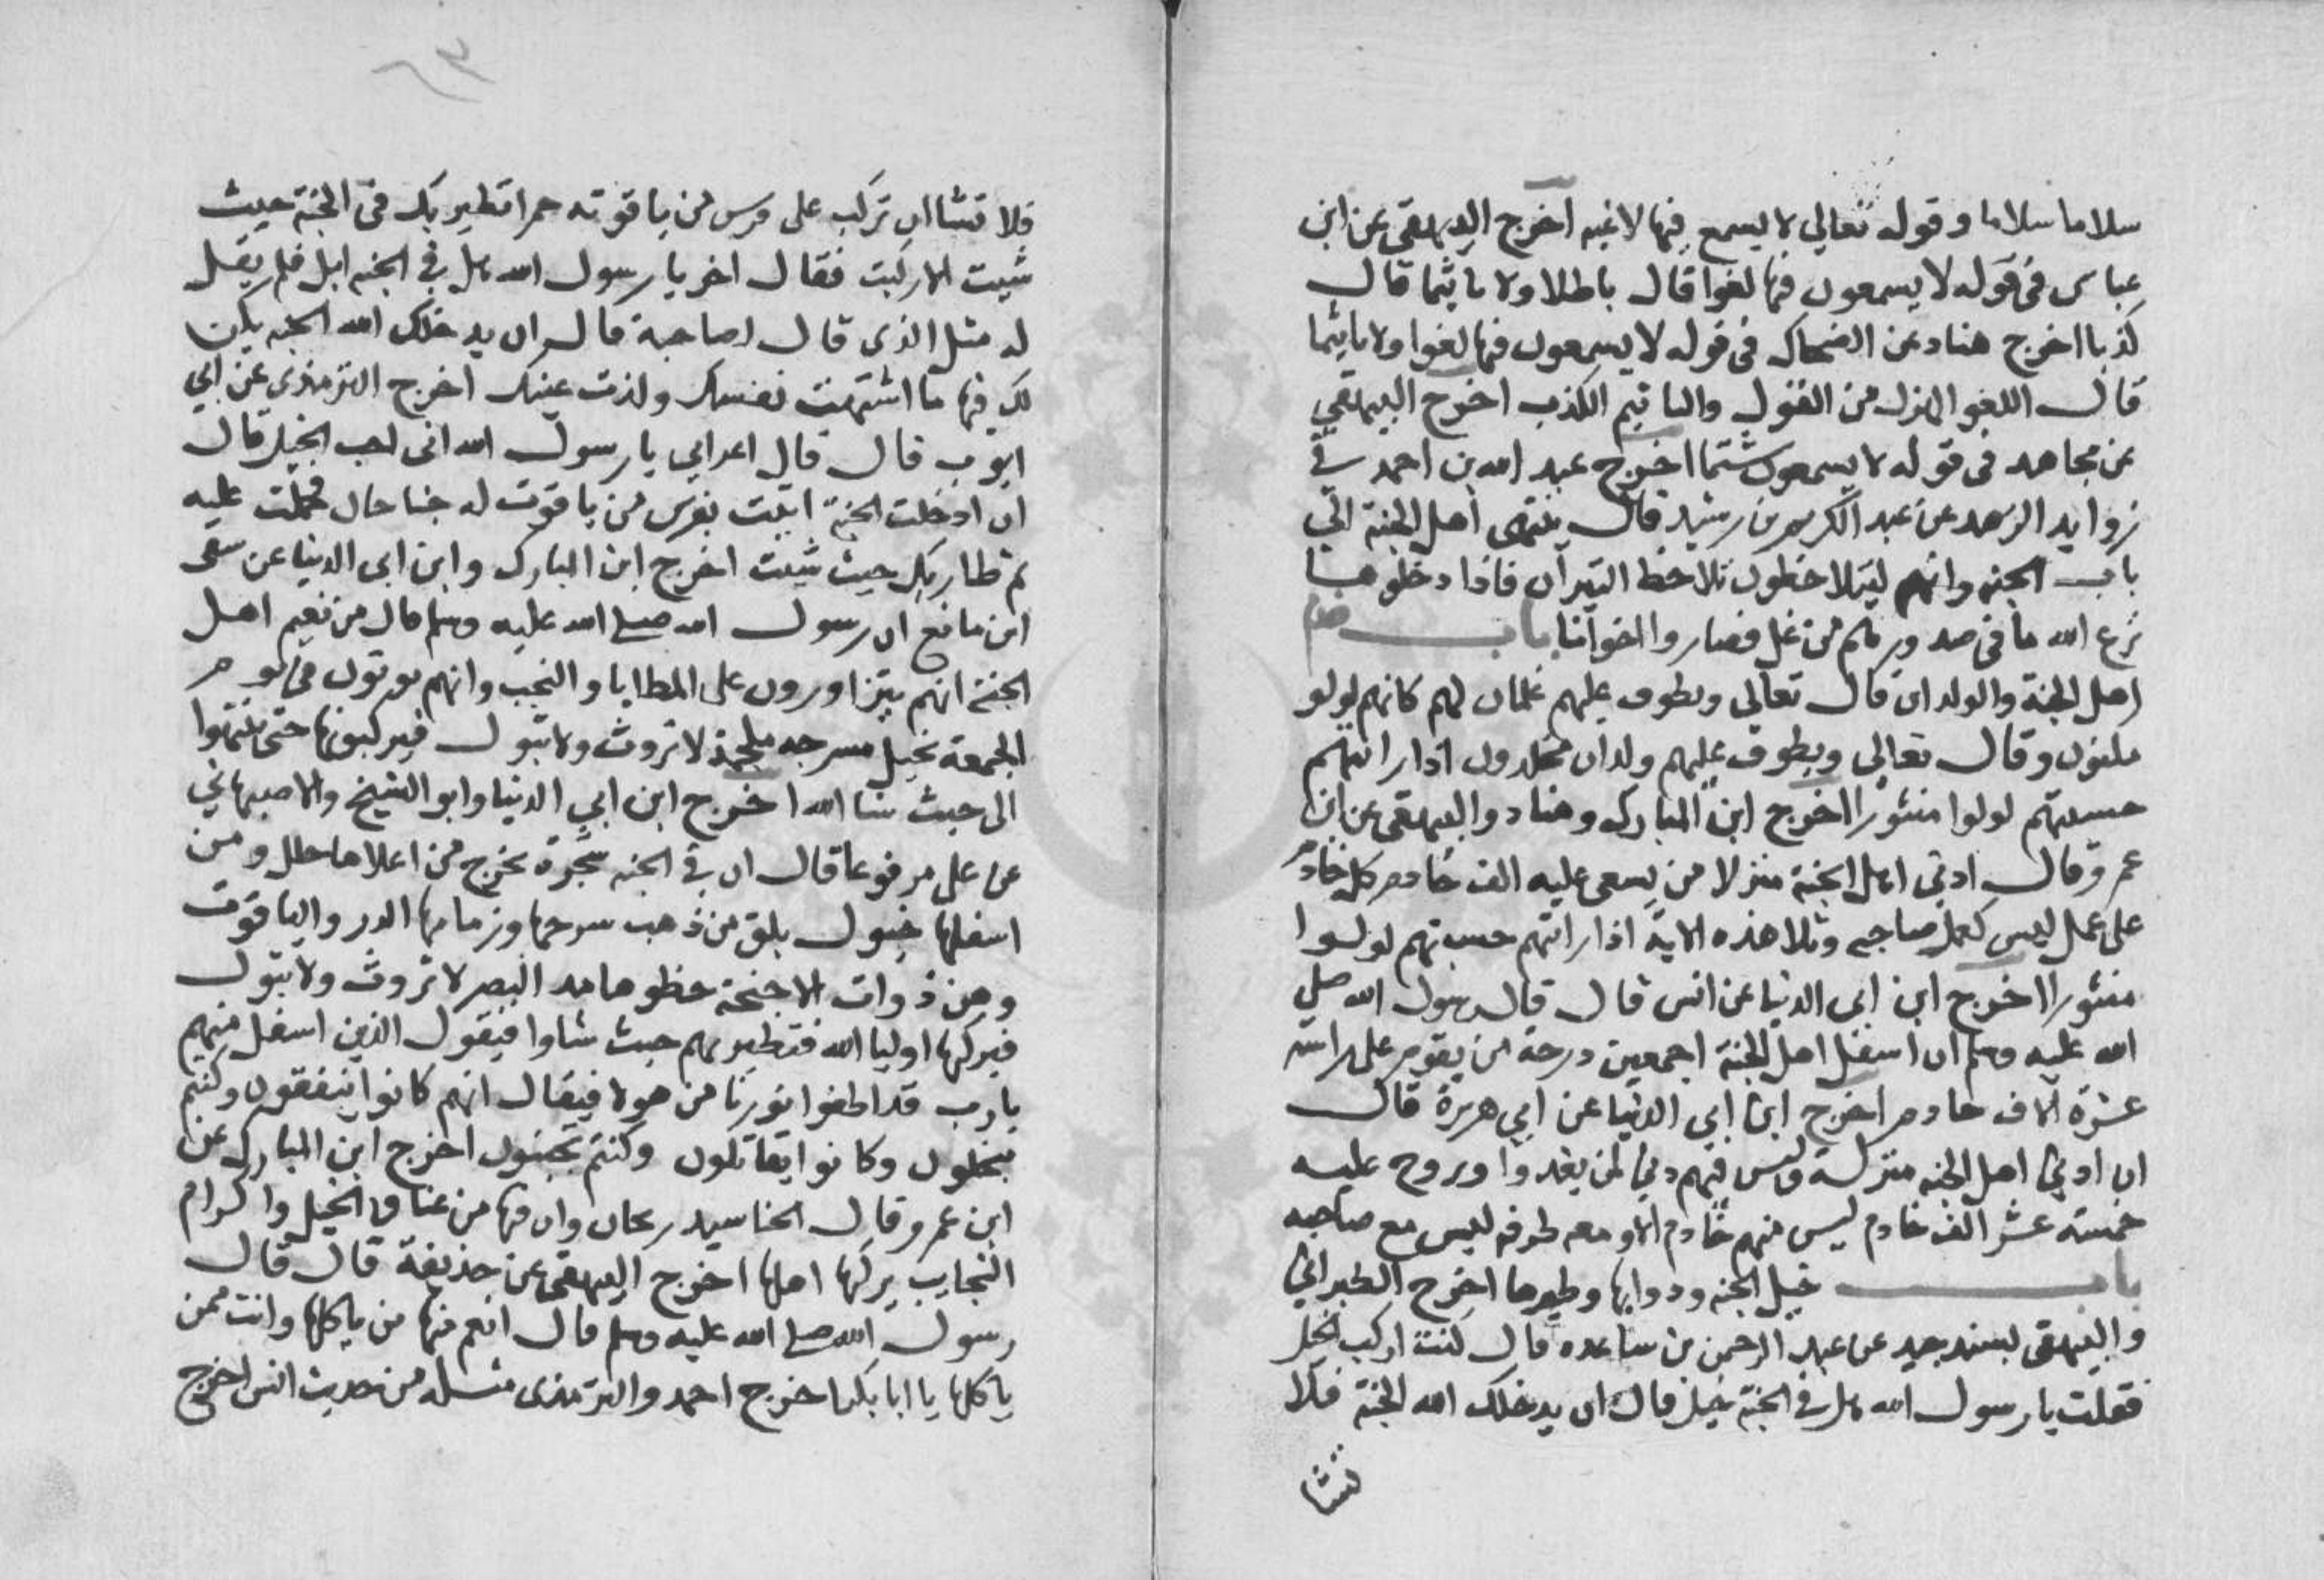 سلاما سلاما وقوله تعالي لا يسمع فيها لاغيه اخرج البيهقى عن ابن
عباس فى قوله لا يسمعون فيها لغوا قال باطلا ولا تاثيما قال
كذبا اخرج هناد عن الضحاك فى قوله لا يسمعون فيها لغوا ولا تاثيما
قال اللغو الهزل من القول والتاثيم الكذب اخرج البيهقي
عن مجاهد فى قوله لا يسمعون شتما اخرج عبد الله بن احمد في
زوايد الزهد عن عبد الكريم بن رشيد قال ينتهى اهل الجنة الي
باب الجنه وانهم ليتلاحظون تلاحظ النيران فاذا دخلوها
نزع الله ما فى صدورهم من غل فصاروا اخوانا باب خدم
اهل الجنة والولدان قال تعالى ويطوف عليهم غلمان لهم كانهم لولو
مكنون وقال تعالى ويطوف عليهم ولدان مخلدون اذا رايتهم
حسبتهم لولوا منثورا اخرج ابن المبارك وهناد والبيهقى عن ابن
عمرو قال ادني اهل الجنة منزلا من يسعى عليه الف خادم كل خادم
على عمل ليس كعمل صاحبه وتلا هذه الاية اذا رايتهم حسبتهم لولوا
منثورا اخرج ابن ابى الدنيا عن انس قال قال رسول الله صلي
الله عليه وسلم ان اسفل اهل الجنة اجمعين درجة من يقوم على راسه
عشرة آلاف خادم اخرج ابن ابي الدنيا عن ابي هريرة قال
ان ادني اهل الجنه منزلة وليس فيهم دني لمن يغدوا ويروح عليه
خمسة عشر الف خادم ليس منهم خادم الا ومعه طرفه ليس مع صاحبه
باب خيل الجنه ودوابها وطيرها اخرج الطبراني
والبيهقى بسند جيد عن عبد الرحمن بن ساعده قال كنت اركب الخيل
فقلت يا رسول الله هل فى الجنة خيل قال ان يدخلك الله الجنة فلا
تشا
٦٣
فلا تشا ان تركب على فرس من ياقوته حمرا تطير بك فى الجنة حيث
شيت الا ركبت فقال اخر يا رسول الله هل في الجنه ابل فلم يقل
له مثل الذى قال لصاحبة قال ان يدخلك الله الجنه يكن
لك فيها ما اشتهت نفسك ولذت عينك اخرج الترمذى عن ابي
ايوب قال قال اعرابي يا رسول الله انى احب الخيل قال
ان ادخلت الجنة اتيت بفرس من ياقوت له جناحان فحملت عليه
ثم طار بك حيث شيت اخرج ابن المبارك وابن ابى الدنيا عن سفى
ابن مانع ان رسول الله صلى الله عليه وسلم قال من نعيم اهل
الجنة انهم يتزاورون على المطايا والنجب وانهم يوتون فى يوم
الجمعة بخيل مسرجه ملجمة لا تروث ولا تبول فيركبونها حتى ينتهوا
الى حيث شا الله اخرج ابن ابي الدنيا وابو الشيخ والاصبهاني
عن على مرفوعا قال ان في الجنه شجرة يخرج من اعلاها حلل ومن
اسفلها خيول بلق من ذهب سرجها وزمامها الدر والياقوت
وهن ذوات الاجنحة خطوها مد البصر لا تروث ولا تبول
فيركبها اوليا الله فتطير بهم حيث شاوا فيقول الذين اسفل منهم
يارب قد اطفوا نورنا من هولا فيقال انهم كانوا ينفقون وكنتم
تبخلون وكانوا يقاتلون وكنتم تجبنون اخرج ابن المبارك عن
ابن عمرو قال الحنا سيد ريحان وان فيها من عناق الخيل واكرام
النجايب يركبها اهلها اخرج البيهقى عن حذيفة قال قال
رسول الله صلى الله عليه وسلم قال انعم منها من ياكلها وانت ممن
ياكلها يا ابا بكر اخرج احمد والترمذى مثله من حديث انس اخرج